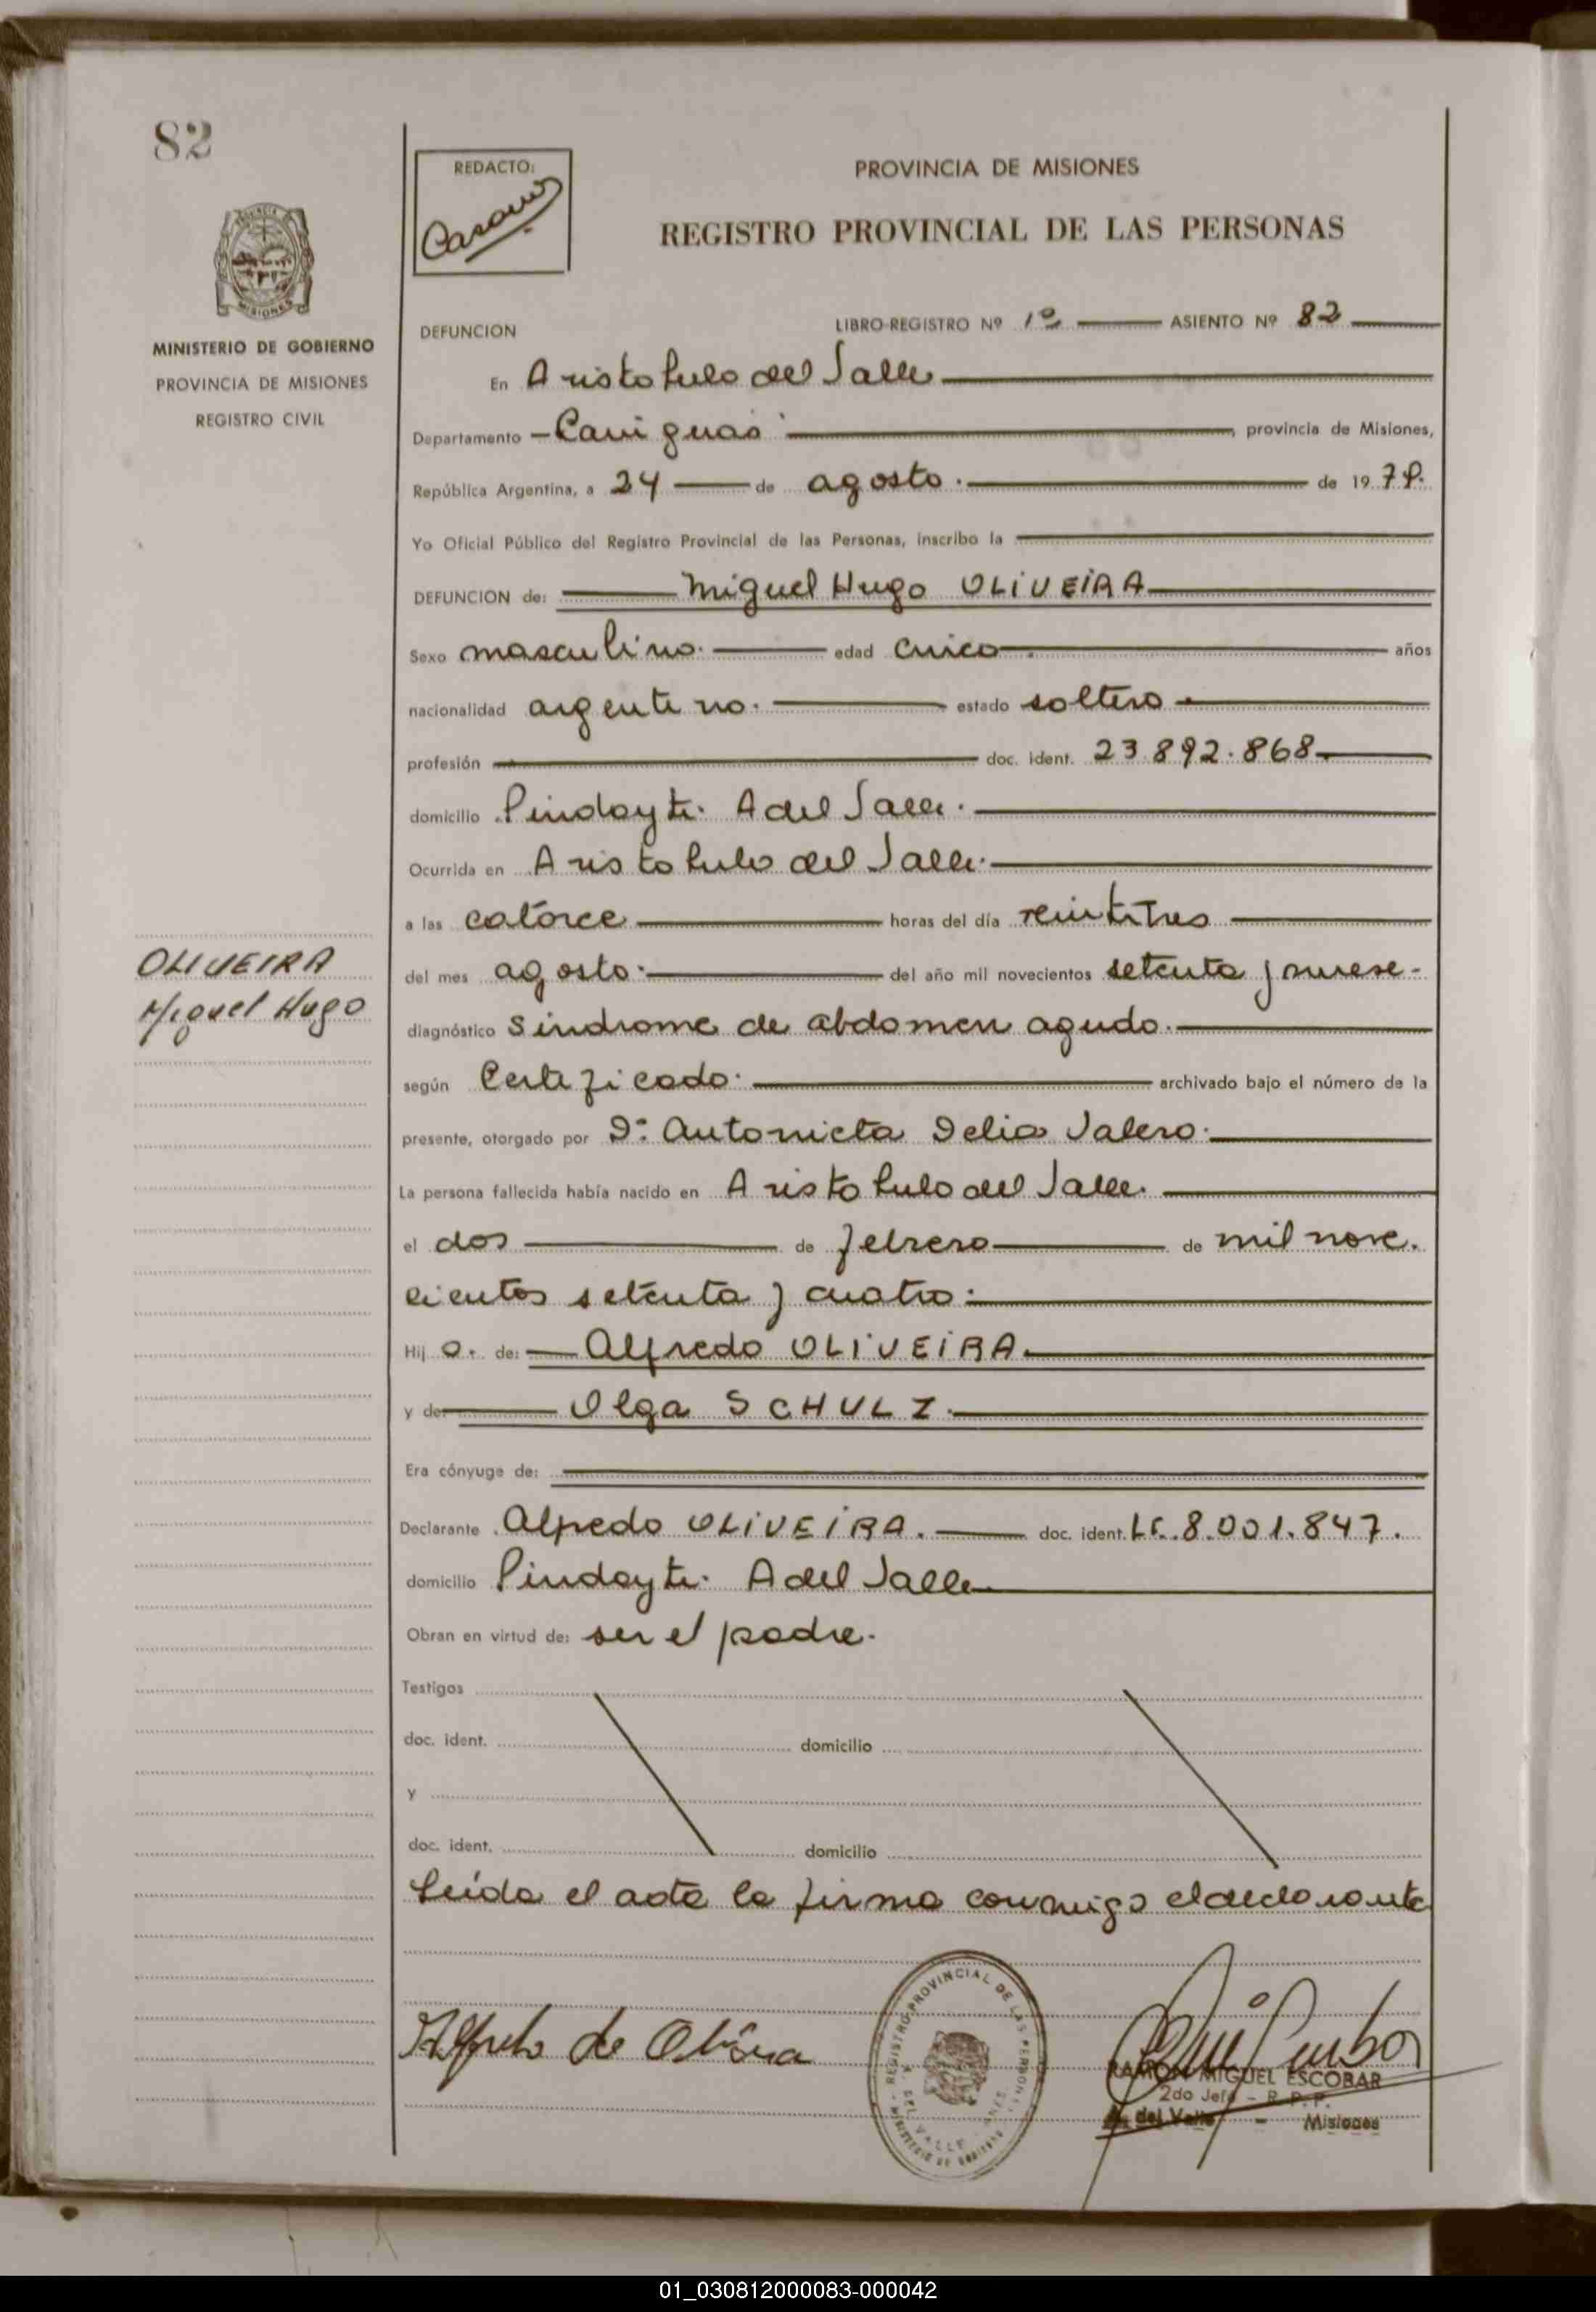 82
REDACTO:
PROVINCIA DE MISIONES
REGISTRO PROVINCIAL DE LAS PERSONAS
MINISTERIO DE GOBIERNO
PROVINCIA DE MISIONES
REGISTRO CIVIL
DEFUNCION LIBRO-REGISTRO Nº 1º ASIENTO Nº 82
En Aristobulo del Valle
Departamento - Cainguas provincia de Misiones,
República Argentina, a 24 de agosto. de 1979.
Yo Oficial Público del Registro Provincial de las Personas, inscribo la
DEFUNCION de: Miguel Hugo OLIVEIRA
Sexo masculino. edad cinco años
nacionalidad argentino. estado soltero.
profesión doc. ident. 23.892.868
domicilio Pindayti. A del Valle.
Ocurrida en Aristobulo del Valle.
a las catorce horas del día veintitres
OLIVEIRA
Miguel Hugo
del mes agosto. del año mil novecientos setenta y nueve-
diagnóstico Sindrome de abdomen agudo.
según Certificado. archivado bajo el número de la
presente, otorgado por Dª. Antonieta Delia Valero.
La persona fallecida había nacido en Aristobulo del Valle.
el dos de febrero de mil nove.
cientos setenta y cuatro.
Hij o. de: Alfredo OLIVEIRA.
y de: Olga SCHULZ.
Era cónyuge de:
Declarante Alfredo OLIVEIRA. doc. ident. LE. 8.001.847.
domicilio Pindayti. A del Valle
Obran en virtud de: ser el padre.
Testigos
doc. ident. domicilio
y
doc. ident. domicilio
Leida el acta la firma conmigo el declarante
Alfredo de Olivera
REGISTRO PROVINCIAL DE LAS PERSONAS
A. DEL VALLE
MINISTERIO DE GOBIERNO
RAMON MIGUEL ESCOBAR
2do Jefe - R. P. P.
A. del Valle - Misiones
01_030812000083-000042